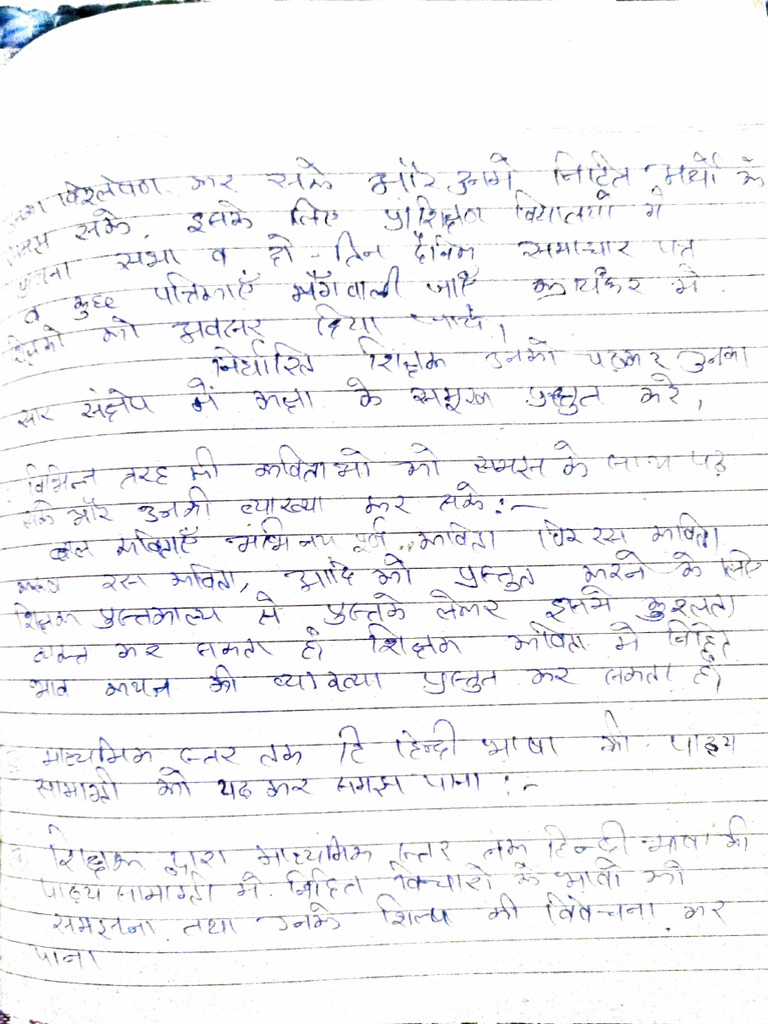 विश्लेषण कर सके और उनमे निहित अर्थो के
समझ सके, इसके लिए प्रशिक्षण विद्यालयो मे
सभा व दो - तिन दैनिक समाचार पत्र
व कुछ पत्रिकाएँ मँगवाली जाएँ कार्यक्रर मे
को अवसर दिया जाये,
निर्धारित शिक्षक उनको पढ़कर उनका
सार संक्षेप में कक्षा के समूख प्रस्तुत करे,
विभिन्न तरह की कविताओ को समझ के साथ पढ़
सके और उनकी व्याख्या कर सके :-
बाल कविताएँ अभिनय पूर्व कविता विर रस कविता
रस कविता, आदि को प्रस्तुत करने के लिए
शिक्षक पुस्तकालय से पुस्तके लेकर इसमे कुशलता
व्यक्त कर सकता है। शिक्षक कविता मे निहित
भाव कथन की व्याख्या प्रस्तुत कर सकता है।
माध्यमिक स्तर तक हि हिन्दी भाषा की पाठ्य
सामाग्री को पढ़ कर समझ पाना :-
शिक्षक द्वारा माध्यमिक स्तर तक हिन्दी भाषा की
पाठ्य सामाग्री मे निहित विचारो के भावो को
समझना तथा उनके शिल्प की विवेचना कर
पाना